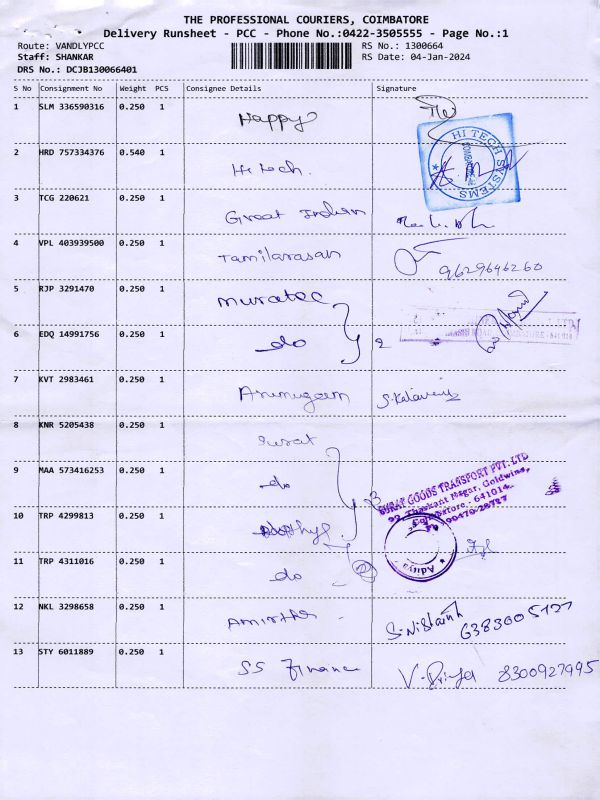 THE PROFESSIONAL COURIERS, COIMBATORE
Delivery Runsheet - PCC - Phone No.:0422-3505555 - Page No.:1
Route: VANDLYPCC
RS No.: 1300664
Staff: SHANKAR
RS Date: 04-Jan-2024
DRS No.: DCJB130066401
S No Consignment No Weight PCS Consignee Details Signature
1 SLM 336590316 0.250 1 Happy
2 HRD 757334376 0.540 1 Hi tech.
HI TECH SYSTEMS
3 TCG 220621 0.250 1 Great Indian
4 VPL 403939500 0.250 1 Tamilarasan
9629646260
5 RJP 3291470 0.250 1 muratec
6 EDQ 14991756 0.250 1 do 2
7 KVT 2983461 0.250 1 Arumugam
8 KNR 5205438 0.250 1 Surat
9 MAA 573416253 0.250 1 do
SURAT GOODS TRANSPORT PVT. LTD
Thaskant Nagar, Goldwins,
Coimbatore - 641014.
10 TRP 4299813 0.250 1
11 TRP 4311016 0.250 1 do
Aditya
12 NKL 3298658 0.250 1 Amirtha
13 STY 6011889 0.250 1 SS Finance V. Priya 8300927995